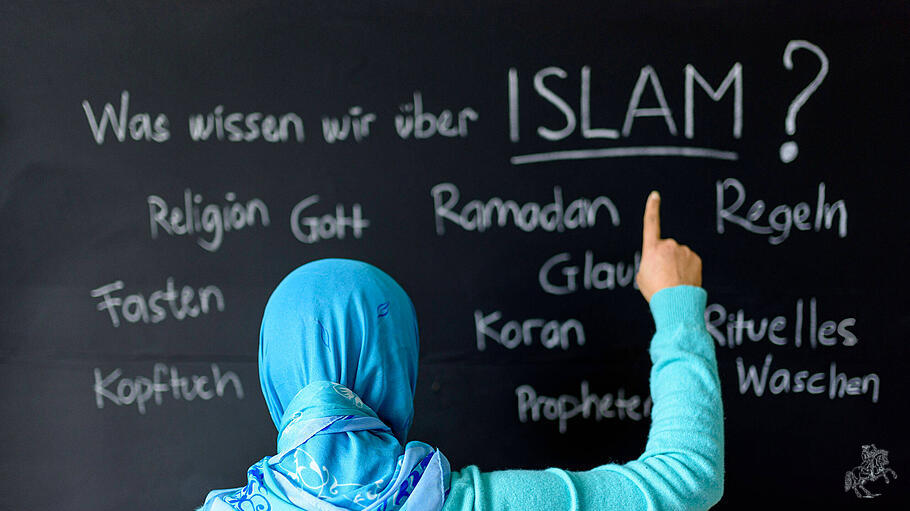 Was wissen wir über ISLAM?
Religion Gott Ramadan Regeln
Fasten Koran Rituelles
Kopftuch Waschen